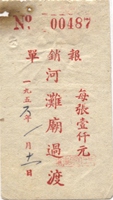 No 00487
報銷單
河灘廟過渡
每張壹仟元
一九五 年 月十 日